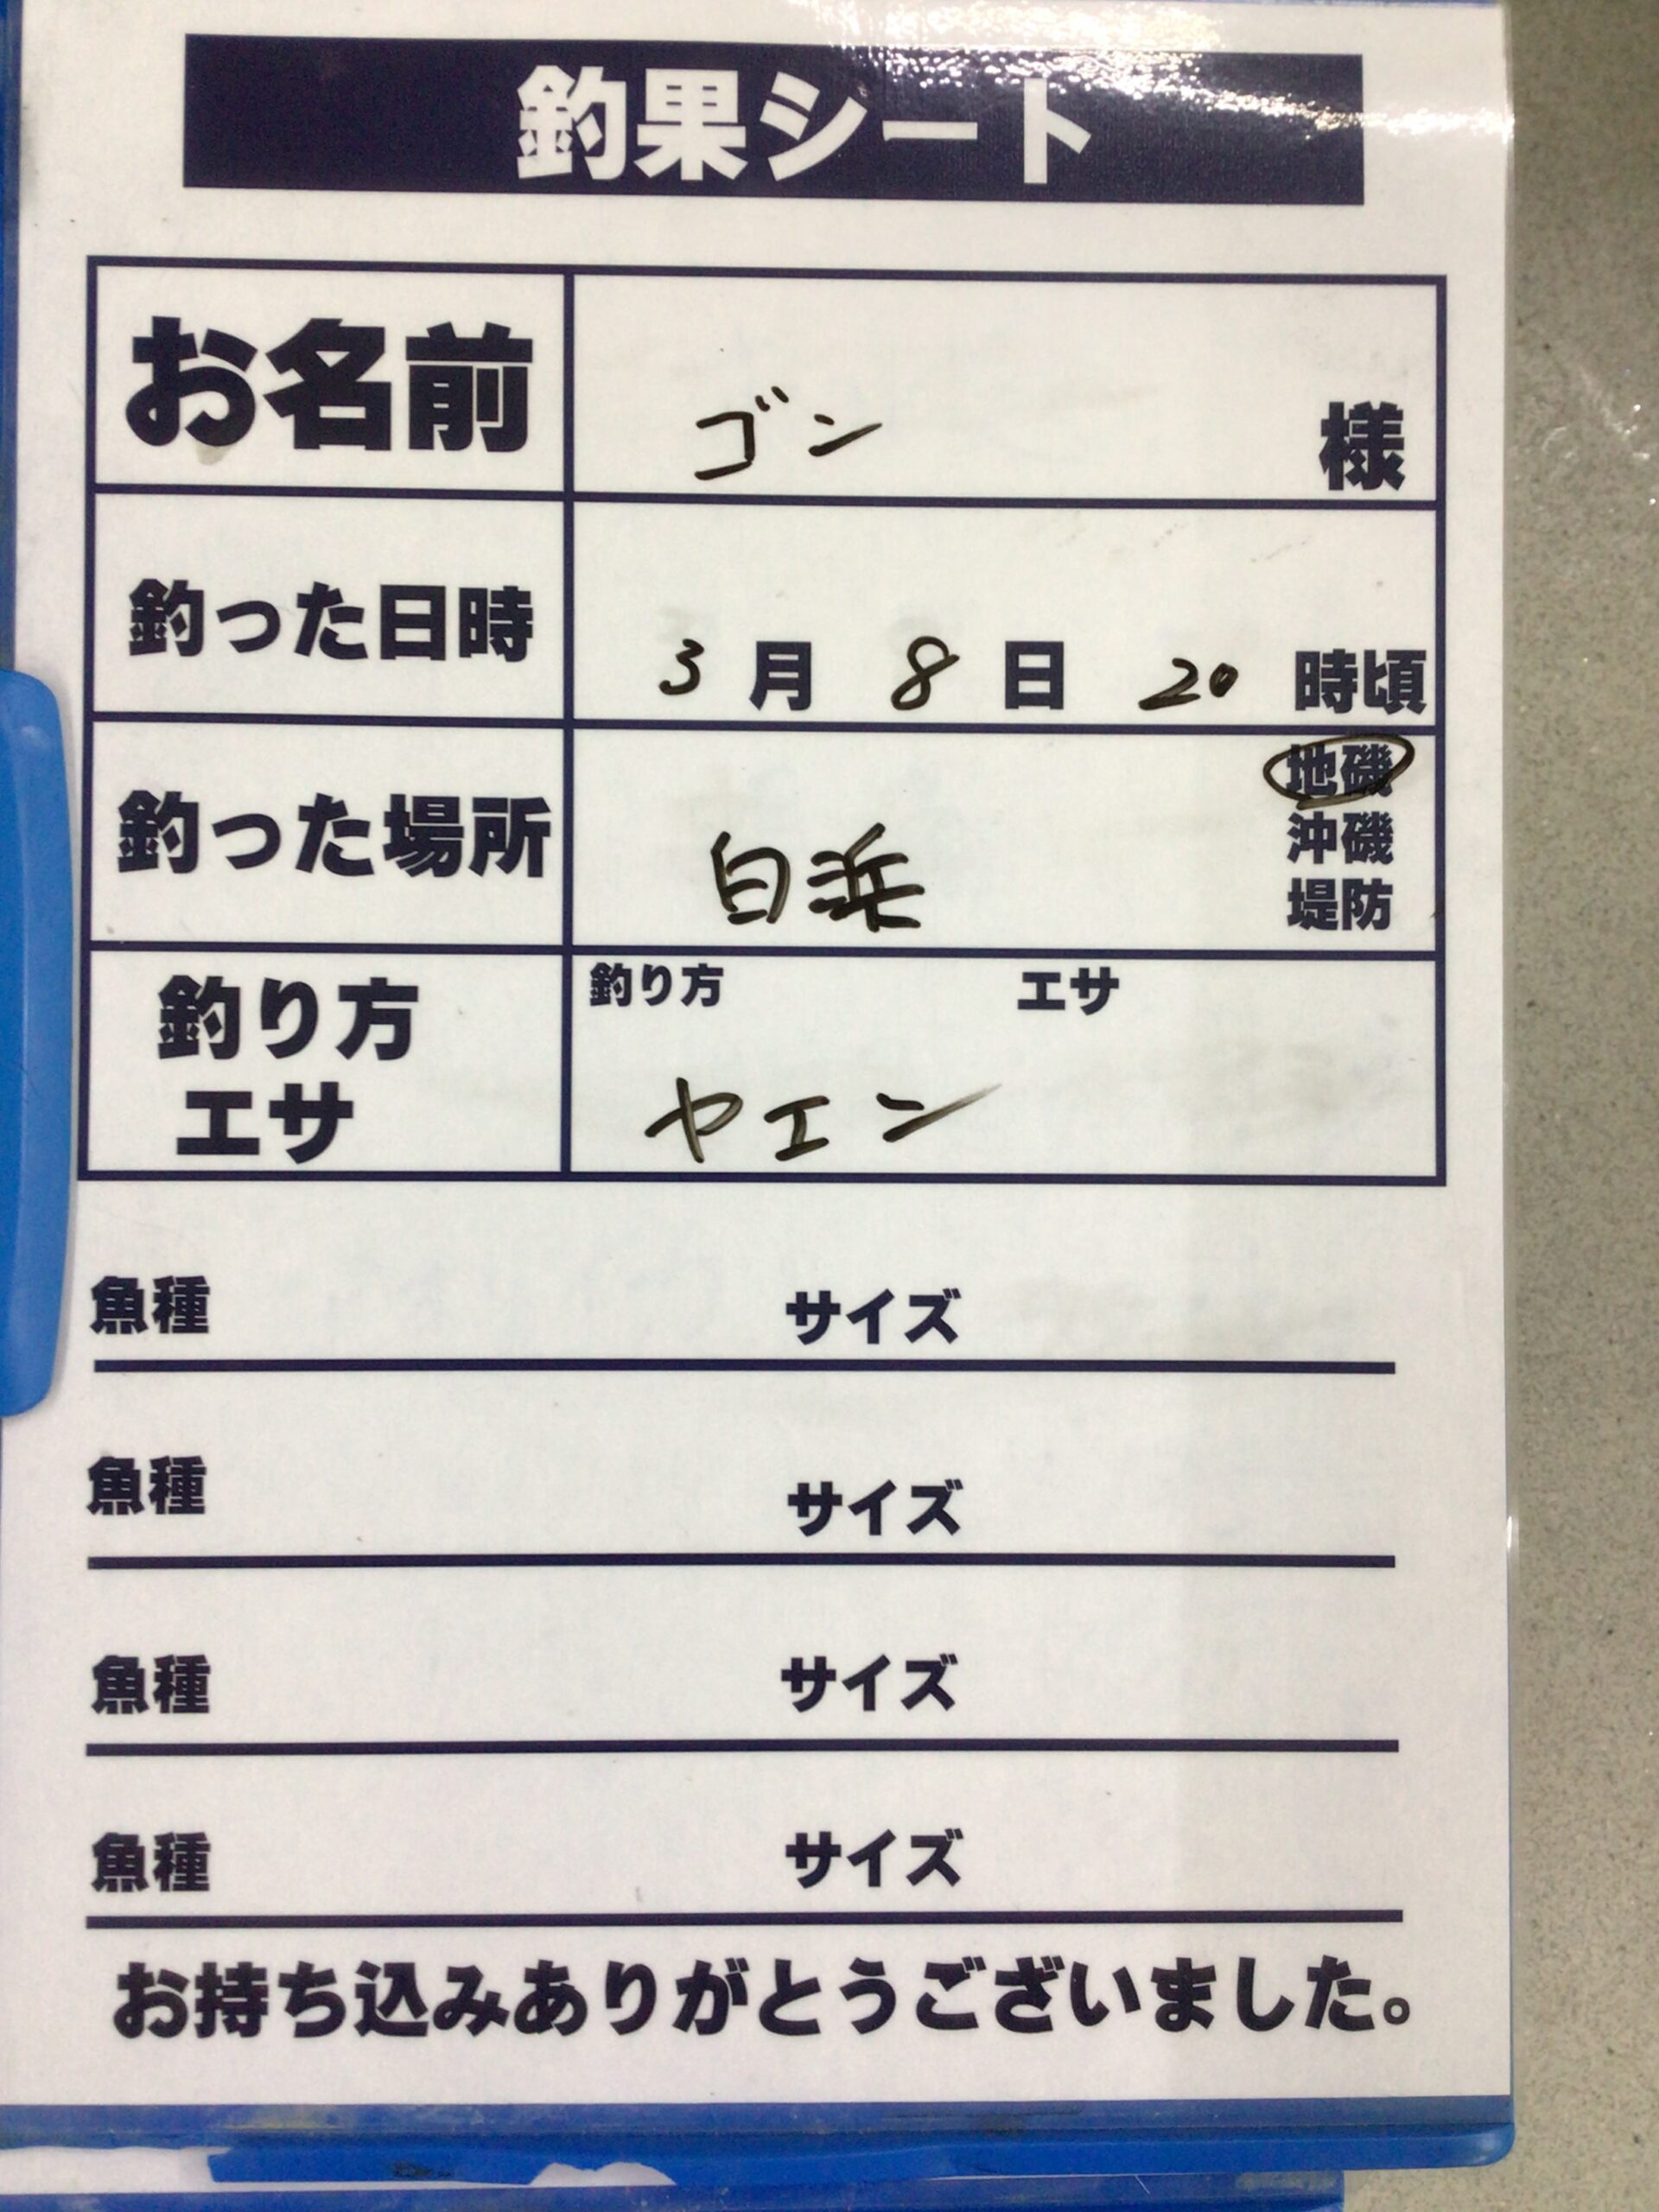 釣果シート
お名前 ゴン 様
釣った日時 3月8日20時頃
釣った場所 白浜 地磯
沖磯
堤防
釣り方 エサ
釣り方
エサ
ヤエン
魚種 サイズ
魚種 サイズ
魚種 サイズ
魚種 サイズ
お持ち込みありがとうございました。